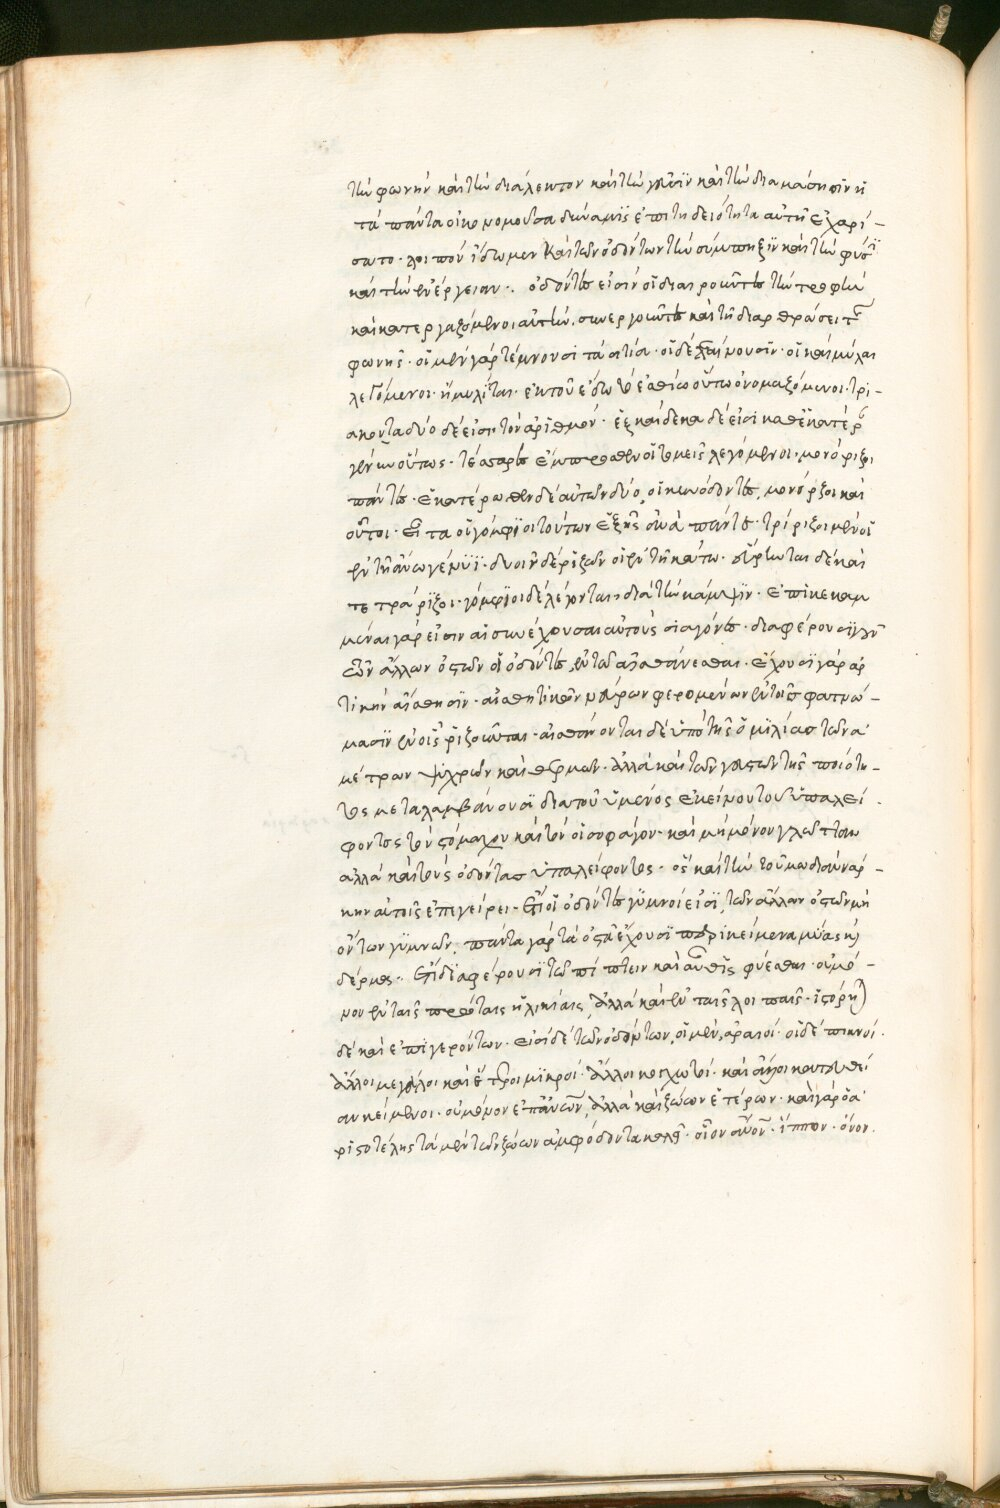 τὴν φωνὴν καὶ τὴν διάλεκτον καὶ τὴν γεῦσϊν καὶ τὴν διαμάσησϊν ἡ
τὰ πάντα οἰκονομοῦσα δύναμϊς ἐπιτηδειότητα αὐτῆ ἐχαρί-
σατο· λοιπὸν ἴδωμεν καὶ τῶν ὀδόντων τὴν σύμπηξϊν καὶ τὴν φύσϊ
καὶ τὴν ἐνέργειαν·. ὀδόντες εἰσὶν οἱ διαιροῦντες τὴν τροφὴν
καὶ κατεργαζόμενοι αὐτὴν. συνεργοῦντες καὶ τῆ διαρθρώσει τῆς
φωνῆς· οἱ μὲν γὰρ τέμνουσι τὰ σιτία· οἱ δὲ λεαίνουσιν· οἱ καὶ μύλαι
λεγόμενοι· ἢ μυλῖται· ἐκ τοῦ ἔδω τὸ ἐσθίω οὕτω ὀνομαζόμενοι· τρι-
άκοντα δύο δέ εἰσι τὸν ἀριθμόν· ἓξ καὶ δέκα δέ εἰσι καθ' ἑκατέρ
γένυν οὕτως· τέσσαρες ἔμπροσθεν οἱ τομεῖς λεγόμενοι· μονόριζοι
πάντες· ἑκατέρωθεν δὲ αὐτῶν δύο, οἱ κυνόδοντες, μονόριζοι καὶ
οὗτοι· εἶτα οἱ γόμφϊοι τούτων ἑξῆς ἀνὰ πέντε· τρίριζοι μὲν οἱ
ἐν τῆ ἄνω γένυϊ· δυοῖν δὲ ῥιζῶν οἱ ἐν τῆ κάτω· εὕρηνται δὲ καὶ
τετράρϊζοι· γόμφϊοι δὲ λέγονται, διὰ τὴν κάμψϊν· ἐπικεκαμ
μέναι γάρ εἰσιν αἱ συνέχουσαι αὐτοὺς σιαγόνες· διαφέρουσϊ γοῦν
τῶν ἄλλων ὀστῶν οἱ ὀδόντες, ἐν τῶ αἰσθάνεσθαι· ἔχουσϊ γὰρ ἁρ
τικὴν αἴσθησϊν· αἰσθητικῶν νεύρων φερομένων ἐν τοῖς φατνώ-
μασϊν ἐν οἷς ῥϊζοῦνται· αἰσθάνονται δὲ ὑπὸ τῆς ὁμϊλίας τῶν ἀ
μέτρων ψυχρῶν καὶ θερμῶν· ἀλλὰ καὶ τῶν γευστῶν τῆς ποιότη-
τος μεταλαμβάνουσϊ διὰ τοῦ ὑμένος ἐκείνου τοῦ ὑπαλεί
φοντος τὸν στόμαχον καὶ τὸν οἰσοφάγον· καὶ μὴ μόνον γλῶτταν
ἀλλὰ καὶ τοὺς ὀδόντας ὑπαλείφοντος· ὃς καὶ τὴν τοῦ μωδιᾶν ἀνάγ-
κην αὐτοῖς ἐπεγείρει· ἔτι οἱ ὀδόντες γϋμνοί εἰσϊ, τῶν ἄλλων ὀστῶν μὴ
ὄντων γϋμνῶν, πάντα γὰρ τὰ ὀστᾶ ἔχουσϊ περικείμενα μύας ἢ
δέρμα·. ἔτι διαφέρουσϊ τῶ πίπτειν καὶ αὖθϊς φύεσθαι· οὐ μό-
νον ἐν ταῖς πρώταις ἡλικίαις, ἀλλὰ καὶ ἐν ταῖς λοιπαῖς· ἱστόρηται
δὲ καὶ ἐπὶ γερόντων· εἰσὶ δὲ τῶν ὀδόντων, οἱ μὲν, ἀραιοί· οἱ δὲ πυκνοί·
ἄλλοι μεγάλοι καὶ ἕτεροι μϊκροί· ἄλλοι
κείμενοι· οὐ μόνον ἐπ' ἀνων, ἀλλὰ καὶ ζώων ἑτέρων· καὶ γὰρ ὁ ἀ
ριστοτέλης τὰ μὲν τῶν ζώων ἀμφόδοντα καλεῖ· οἷον ἄνον· ἵππον· ὄνον·